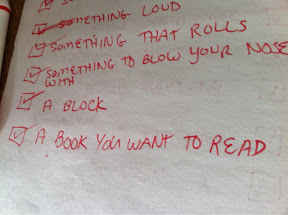 SOMETHING LOUD
SOMETHING THAT ROLLS
SOMETHING TO BLOW YOUR NOSE
WITH
A BLOCK
A BOOK YOU WANT TO READ